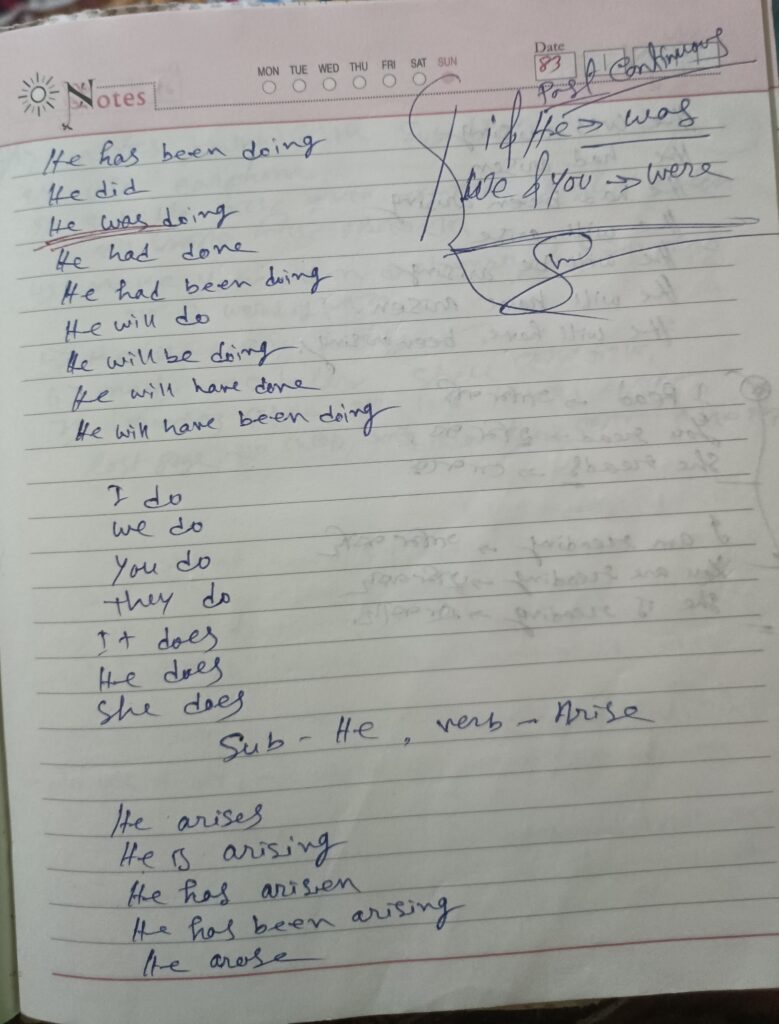 Notes
MON TUE WED THU FRI SAT SUN
Date
83
Past Continuous
if He → was
We & You → were
He has been doing
He did
He was doing
He had done
He had been doing
He will do
He will be doing
He will have done
He will have been doing
I do
we do
You do
they do
It does
He does
She does
Sub - He, verb - Arise
He arises
He is arising
He has arisen
He has been arising
He arose